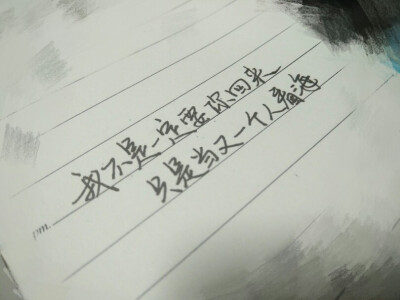 我不是一定要你回来
只是当又一个人看海
pm.